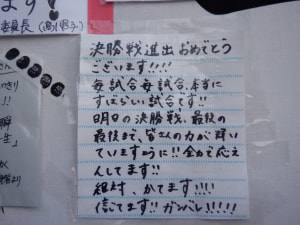 ます!
委員長
決勝戦進出おめでとう
ございます!!!!
毎試合毎試合、本当に
すばらしい試合です!!
明日の決勝戦、最後の
最後まで、皆さんの力が輝い
ていますように!!全力で応え
んしてます!!
絶対、かてます!!!!
信じてます!!ガンバレ!!!!!